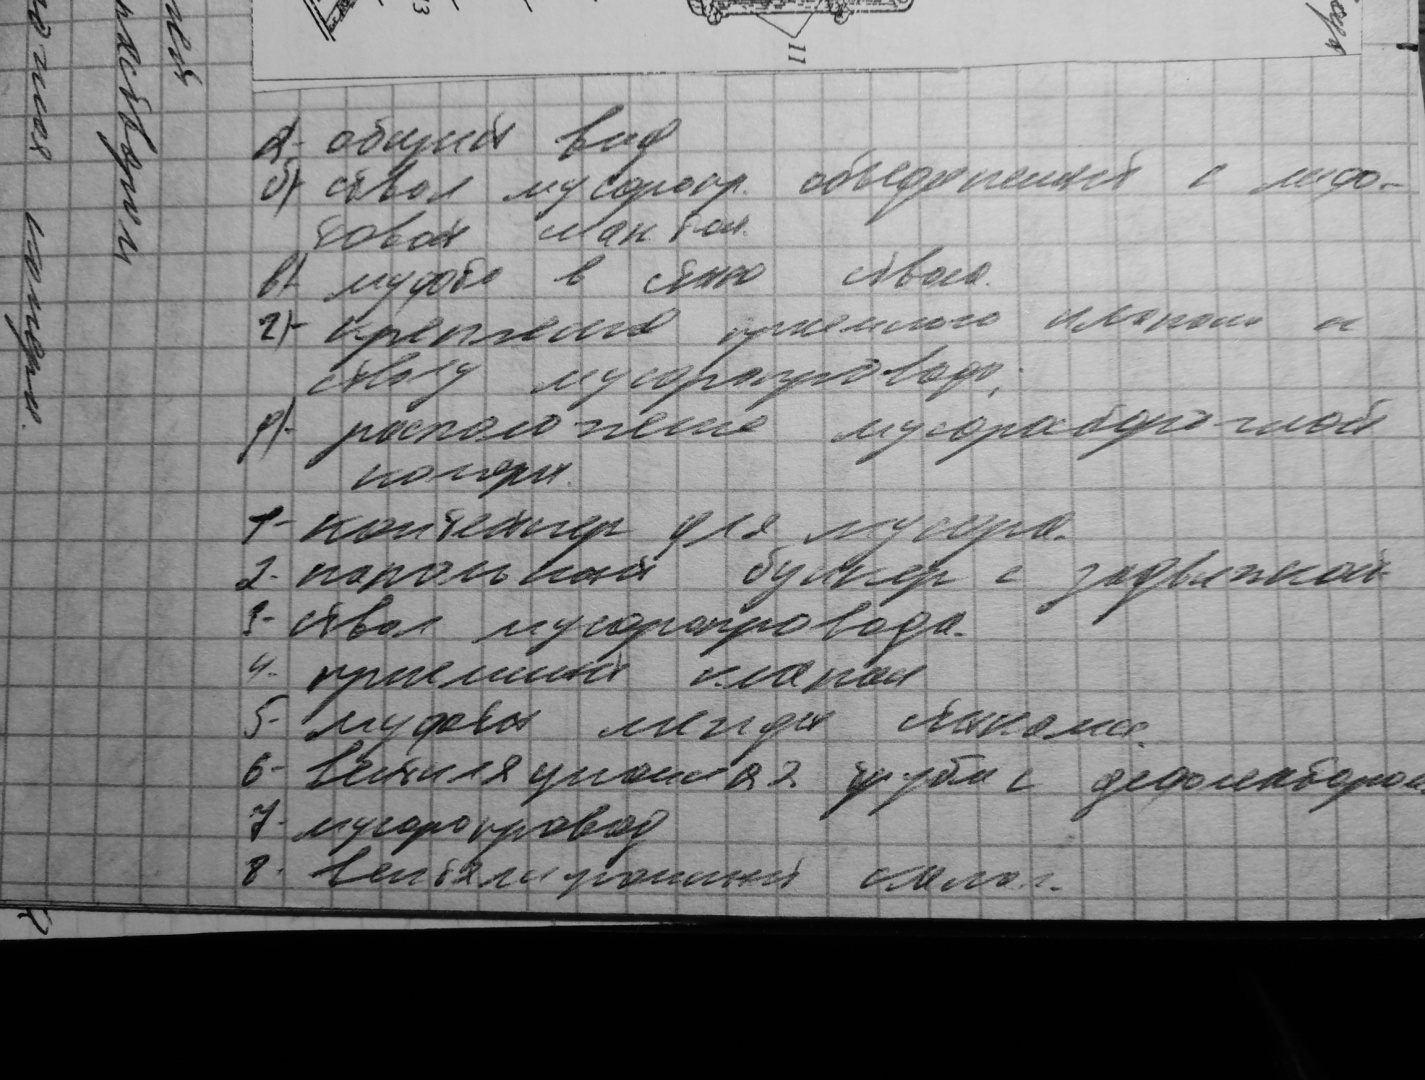 11
3
а- общий вид
б) ствол мусоропр. объеденений с лифо-
товой шахтой.
в) муфта в стыке ствола.
г)- крепление приемного клапана к
стволу мусоропровода;
д)- расположение мусоросборочной
камеры.
1- контейнер для мусора.
2- напольный бункер с задвижкой
3- ствол мусоропровода.
4- приемный клапан
5- муфты между стыками.
6- вентиляционная труба с дефлектором
7- мусоропровод
8- вентиляционный канал.
камеры.